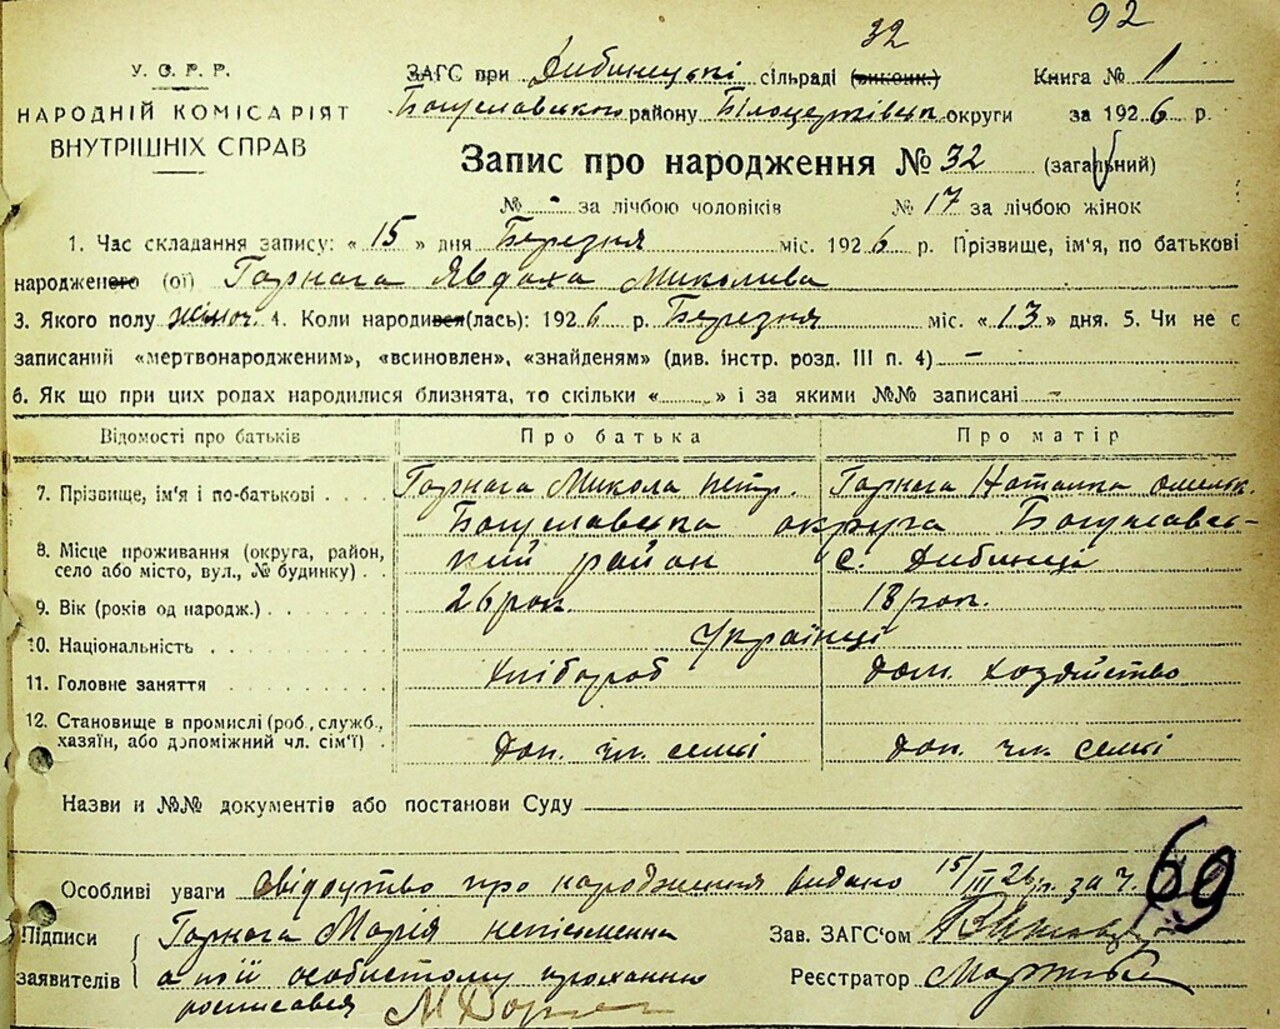 32 92
У. С. Р. Р.
НАРОДНІЙ КОМІСАРІЯТ
ВНУТРІШНІХ СПРАВ
ЗАГС при Дибинецькі сільраді (виконк.) Книга № 1
Богуславського району Білоцерківськ. округи за 1926 р.
Запис про народження № 32 (загальний)
№ - за лічбою чоловіків № 17 за лічбою жінок
1. Час складання запису: « 15 » дня Березня міс. 1926 р. Прізвище, ім'я, по батькові
народженого (ої) Горнага Явдоха Миколива
3. Якого полу жіноч. 4. Коли народився(лась): 1926 р. Березня міс. « 13 » дня. 5. Чи не є
записаний «мертвонародженим», «всиновлен», «знайденям» (див. інстр. розд. III п. 4) -
6. Як що при цих родах народилися близнята, то скільки « » і за якими №№ записані -
Відомості про батьків Про батька Про матір
7. Прізвище, ім'я і по-батькові Горнага Микола петр. Горнага Наталка омельк.
Богуславська округа Богуславсь-
8. Місце проживання (округа, район, кий район с. Дибинці
село або місто, вул., № будинку)
9. Вік (років од народж.) 26 рок. 18 рок.
10. Національність Українці
11. Головне заняття хлібороб дом. хозяйство
12. Становище в промислі (роб., служб.,
хазяїн, або допоміжний чл. сім'ї) доп. чл. семьі доп. чл. семьі
Назви и №№ документів або постанови Суду
Особливі уваги свідоцтво про народження видано 15/III 26 р. за ч. 69
Підписи Горнага Марія неписьменна Зав. ЗАГС'ом
заявителів а по її особистому проханню Реєстратор
росписався М